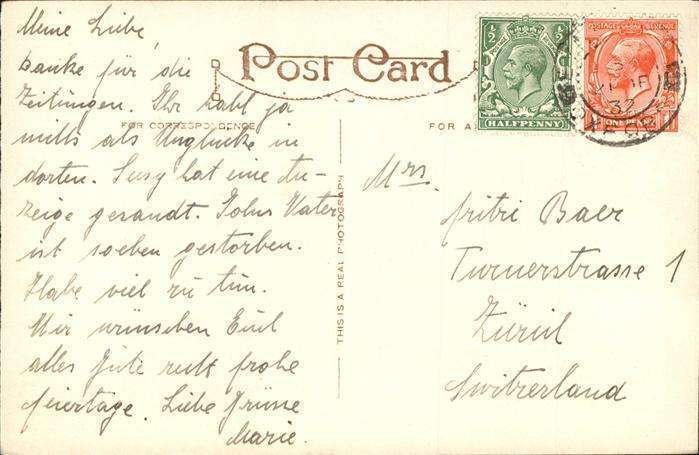 Meine Liebe,
Danke für die
Zeitungen. Ihr habt ja
nichts als Unglücke in
dorten. Susy hat eine An-
zeige gesandt. Johns Vater
ist soeben gestorben.
Habe viel zu tun.
Wir wünschen Euch
alles Gute recht frohe
Feiertage. Liebe Grüsse
Marie.
Post Card
FOR CORRESPONDENCE
FOR A
THIS IS A REAL PHOTOGRAPH
HALFPENNY
POSTAGE REVENUE
ONE PENNY
32
Mrs.
Fritzi Baer
Turnerstrasse 1
Zürich
Switzerland